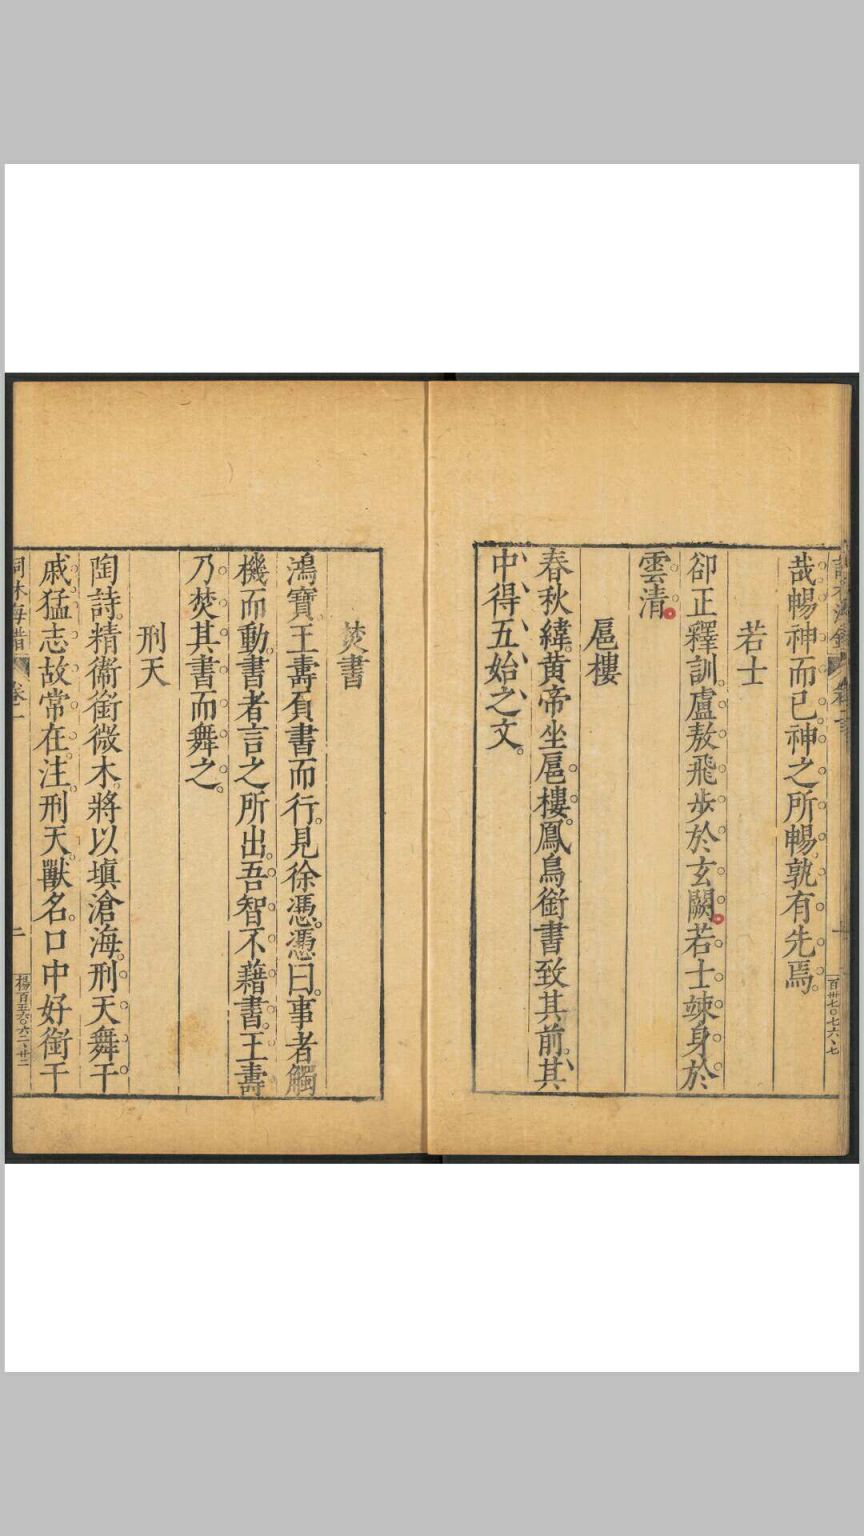 哉暢神而已神之所暢孰有先焉。
若士
卻正釋訓。盧敖飛步於玄闕。若士竦身於
雲清。
扈樓
春秋緯。黃帝坐扈樓。鳳鳥銜書致其前。其
中得五始之文。
焚書
鴻寶。王壽負書而行。見徐馮。馮曰。事者觸
機而動。書者言之所出。吾智不藉書。王壽
乃焚其書而舞之。
刑天
陶詩。精衞銜微木。將以填滄海。刑天舞干
戚。猛志故常在。注。刑天。獸名。口中好銜干